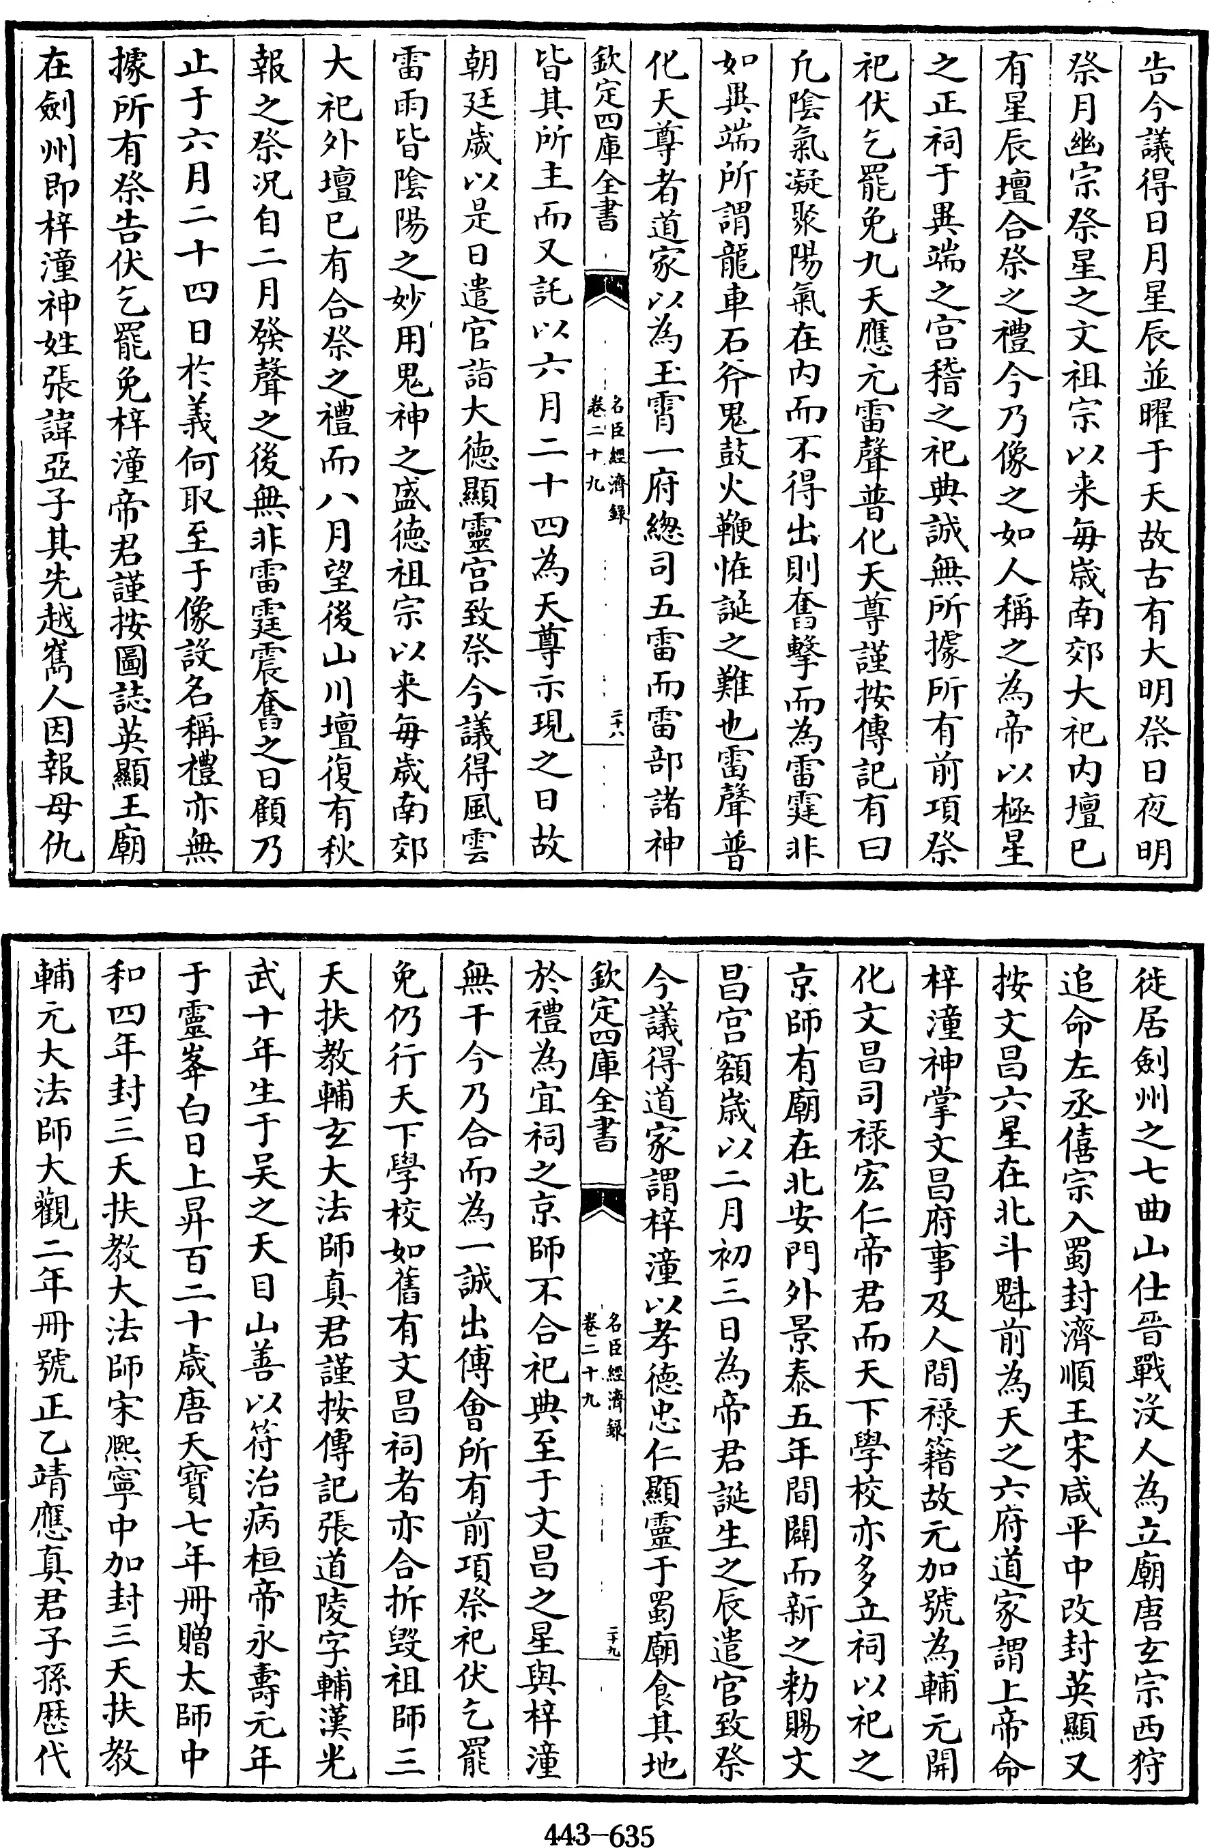 告今議得日月星辰並曜于天故古有大明祭日夜明
祭月幽宗祭星之文祖宗以来每歲南郊大祀内壇已
有星辰壇合祭之禮今乃像之如人稱之為帝以極星
之正祠于異端之宫稽之祀典誠無所據所有前項祭
祀伏乞罷免九天應元雷聲普化天尊謹按傳記有曰
凢陰氣凝聚陽氣在内而不得出則奮擊而為雷霆非
如異端所謂龍車石斧鬼鼓火鞭恠誕之難也雷聲普
化天尊者道家以為玉霄一府總司五雷而雷部諸神
欽定四庫全書
名臣經濟録
卷二十九
二十八
皆其所主而又託以六月二十四為天尊示現之日故
朝廷歲以是日遣官詣大德顯靈宫致祭今議得風雲
雷雨皆陰陽之妙用鬼神之盛德祖宗以来每歲南郊
大祀外壇已有合祭之禮而八月望後山川壇復有秋
報之祭况自二月發聲之後無非雷霆震奮之日顧乃
止于六月二十四日於義何取至于像設名稱禮亦無
據所有祭告伏乞罷免梓潼帝君謹按圖誌英顯王廟
在劍州即梓潼神姓張諱亞子其先越雟人因報母仇
徙居劍州之七曲山仕晉戰没人為立廟唐𤣥宗西狩
追命左丞僖宗入蜀封濟順王宋咸平中改封英顯又
按文昌六星在北斗魁前為天之六府道家謂上帝命
梓潼神掌文昌府事及人間禄籍故元加號為輔元開
化文昌司禄宏仁帝君而天下學校亦多立祠以祀之
京師有廟在北安門外景泰五年間闢而新之勅賜文
昌宫額歲以二月初三日為帝君誕生之辰遣官致祭
今議得道家謂梓潼以孝德忠仁顯靈于蜀廟食其地
欽定四庫全書
名臣經濟録
卷二十九
二十九
於禮為宜祠之京師不合祀典至于文昌之星與梓潼
無干今乃合而為一誠出傅會所有前項祭祀伏乞罷
免仍行天下學校如舊有文昌祠者亦合拆毁祖師三
天扶教輔𤣥大法師真君謹按傳記張道陵字輔漢光
武十年生于吴之天目山善以符治病桓帝永壽元年
于靈峯白日上昇百二十歲唐天寶七年冊贈太師中
和四年封三天扶教大法師宋熙寧中加封三天扶教
輔元大法師大觀二年冊號正乙靖應真君子孫歴代
443-635